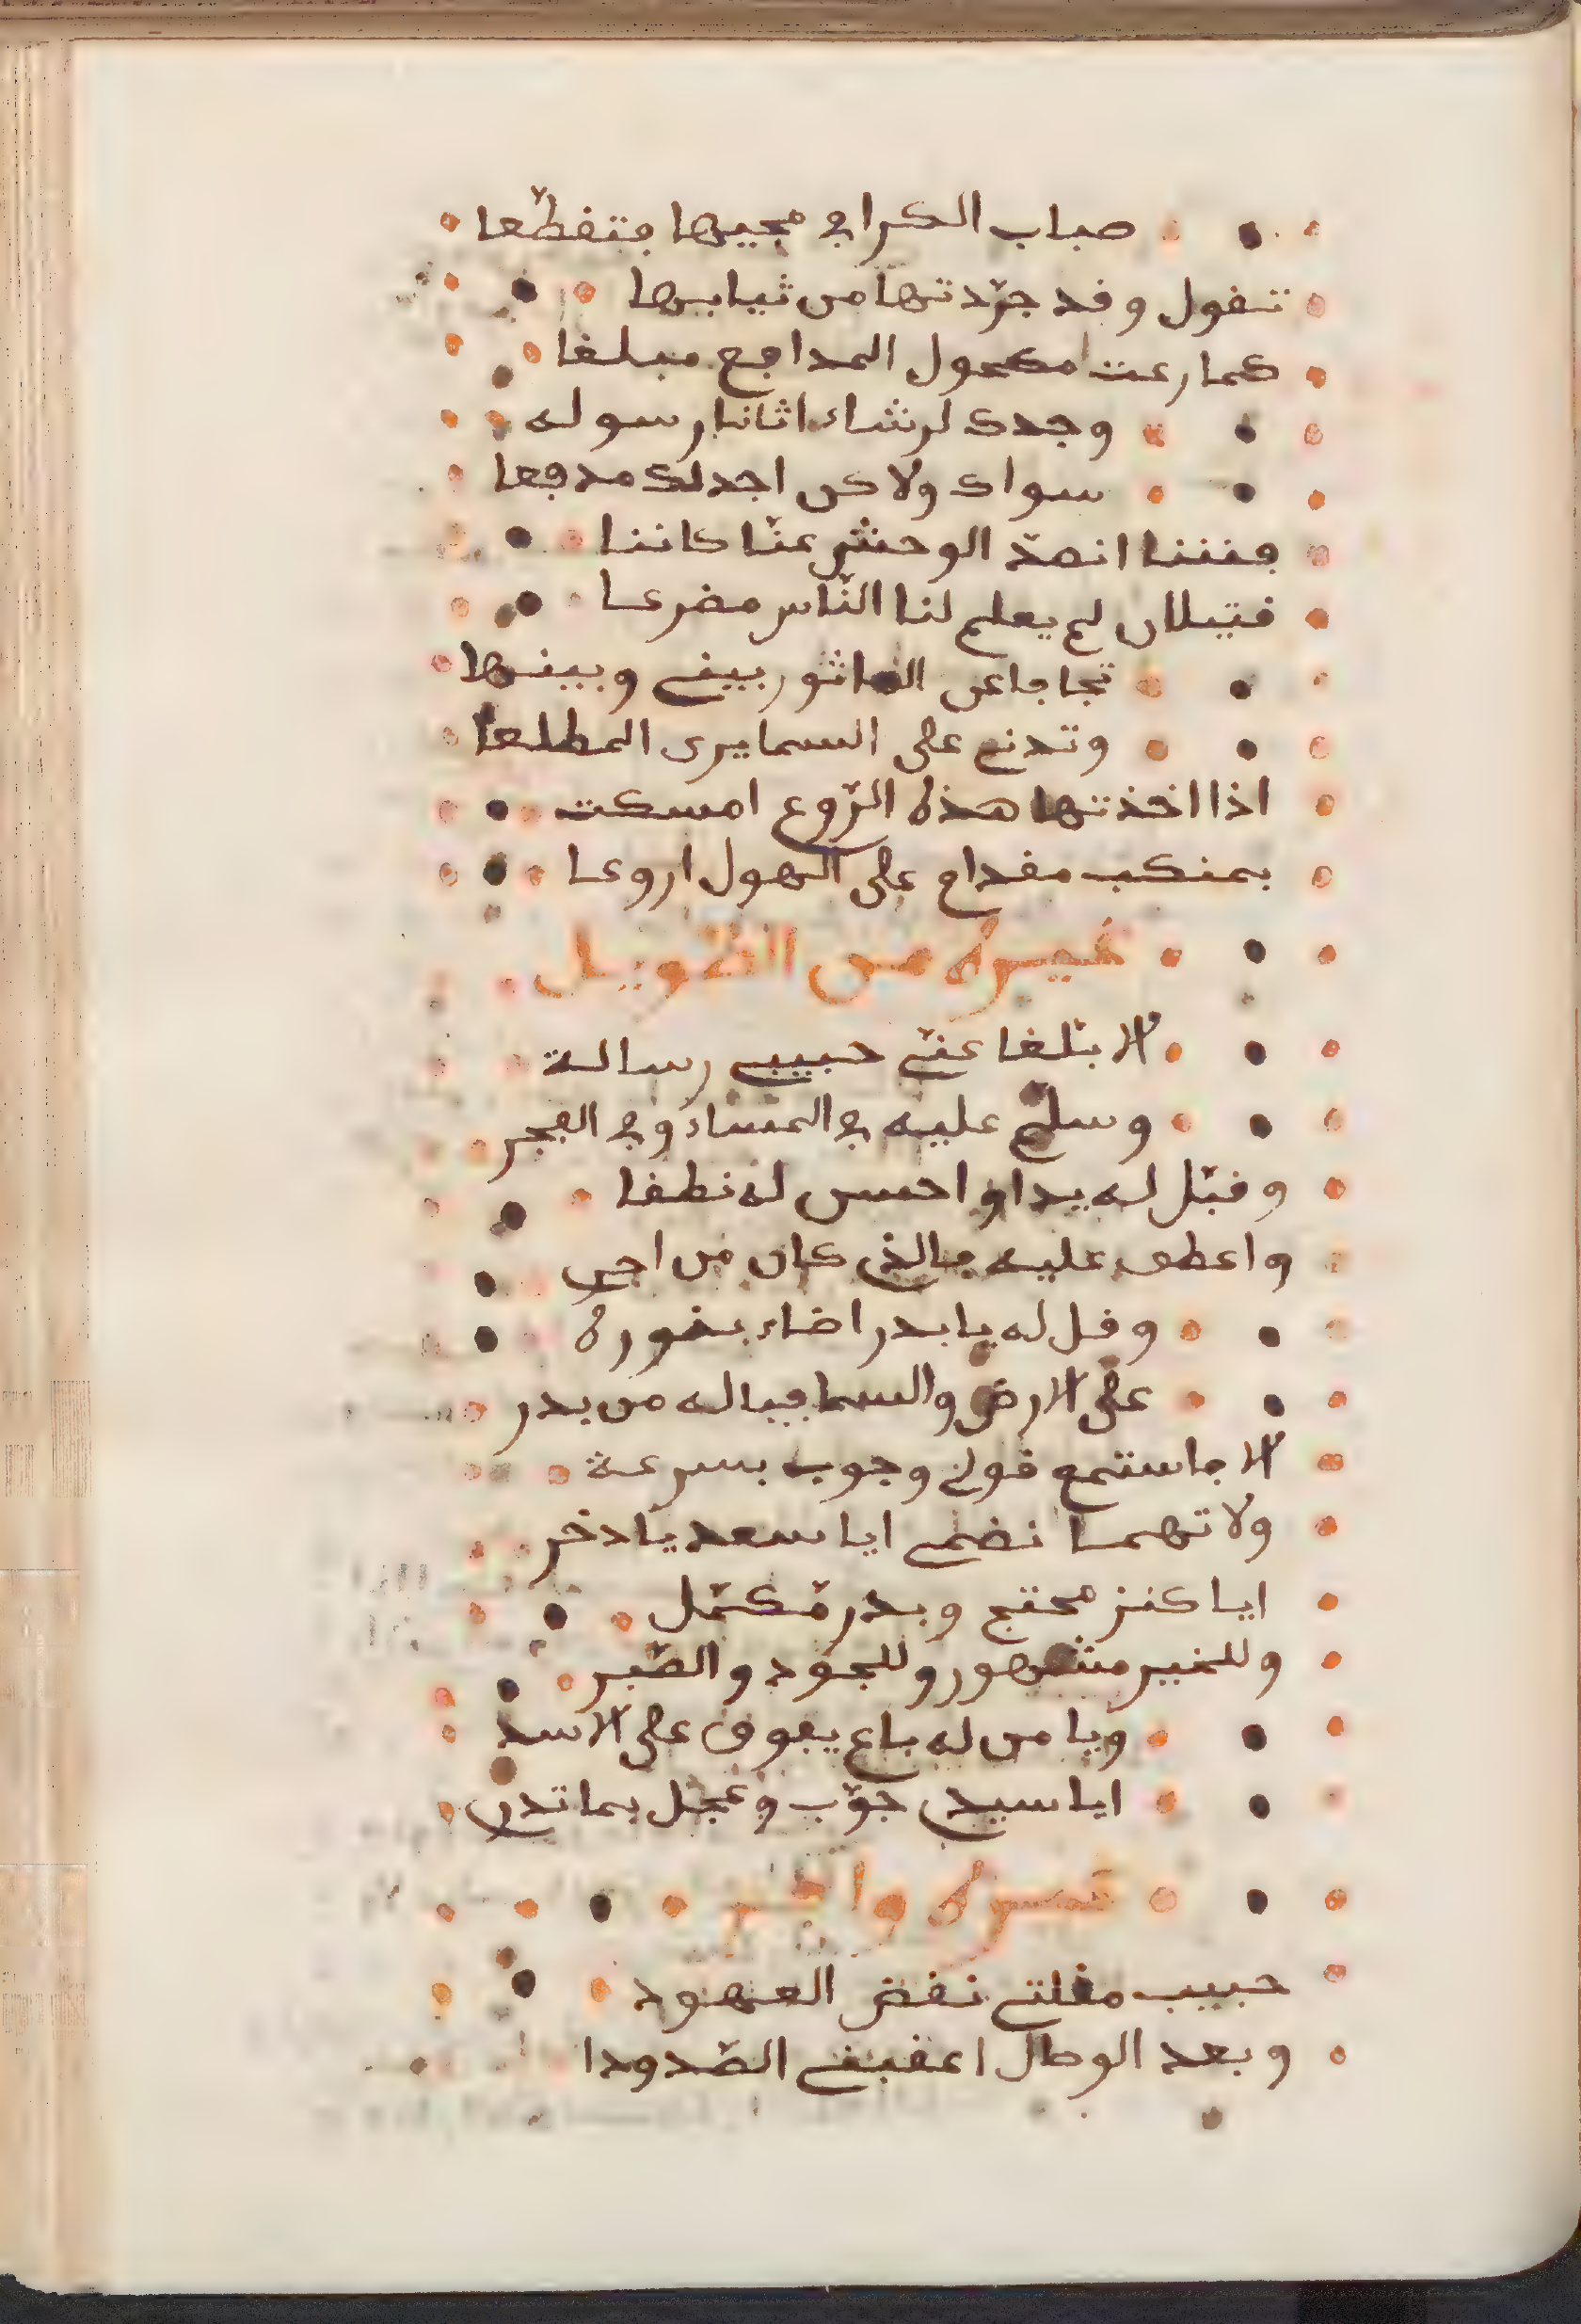 صباب الكرا في مجيبها فتقطّعا
تقول وقد جرّدتها من ثيابها
كما رعت مكحول المدامع مبلغا
وجدك لو شاء اتانا رسوله
سواك ولاكن اجد لك مدفعا
فبتنا نصدّ الوحش عنّا كاننا
قتيلان لم يعلم لنا النّاس مضرعا
تجافا عن الماثور بيني وبينها
وتدني على السمايرى المطلعا
اذا اخذتها هذه الرّوع امسكت
بمنكب مقدام على الهول اروعا
غيره من الطّويل
الا بلّغا عنّي حبيبي رسالة
وسلّم عليه في المساء وفي الفجر
وقبّل له يدا واحسن له نطقا
واعطف عليه فالذي كان من اجري
وقل له يا بدر اضاء بنوره
على الارض والسما فياله من بدر
الا فاستمع قولي وجوب بسرعة
ولا تهما نضمي ايا سعد يا دخر
ايا كنز محتج وبدر مّكمّل
وللخير مشهور وللجود والصّبر
ويا من له باع يفوق على الاسد
ايا سيدي جوّب وعجّل بما تدري
غيره وافر
حبيب مقلتي نقض العهود
وبعد الوصال اعقبني الصّدودا